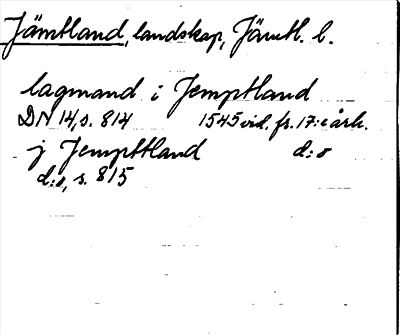 Jämtland, landskap, Jämtl. l.
lagmand i Jemptland
DN 14, s. 814 1545 vid. fr. 17:e årh.
j Jemptland d:o
d:o, s. 815